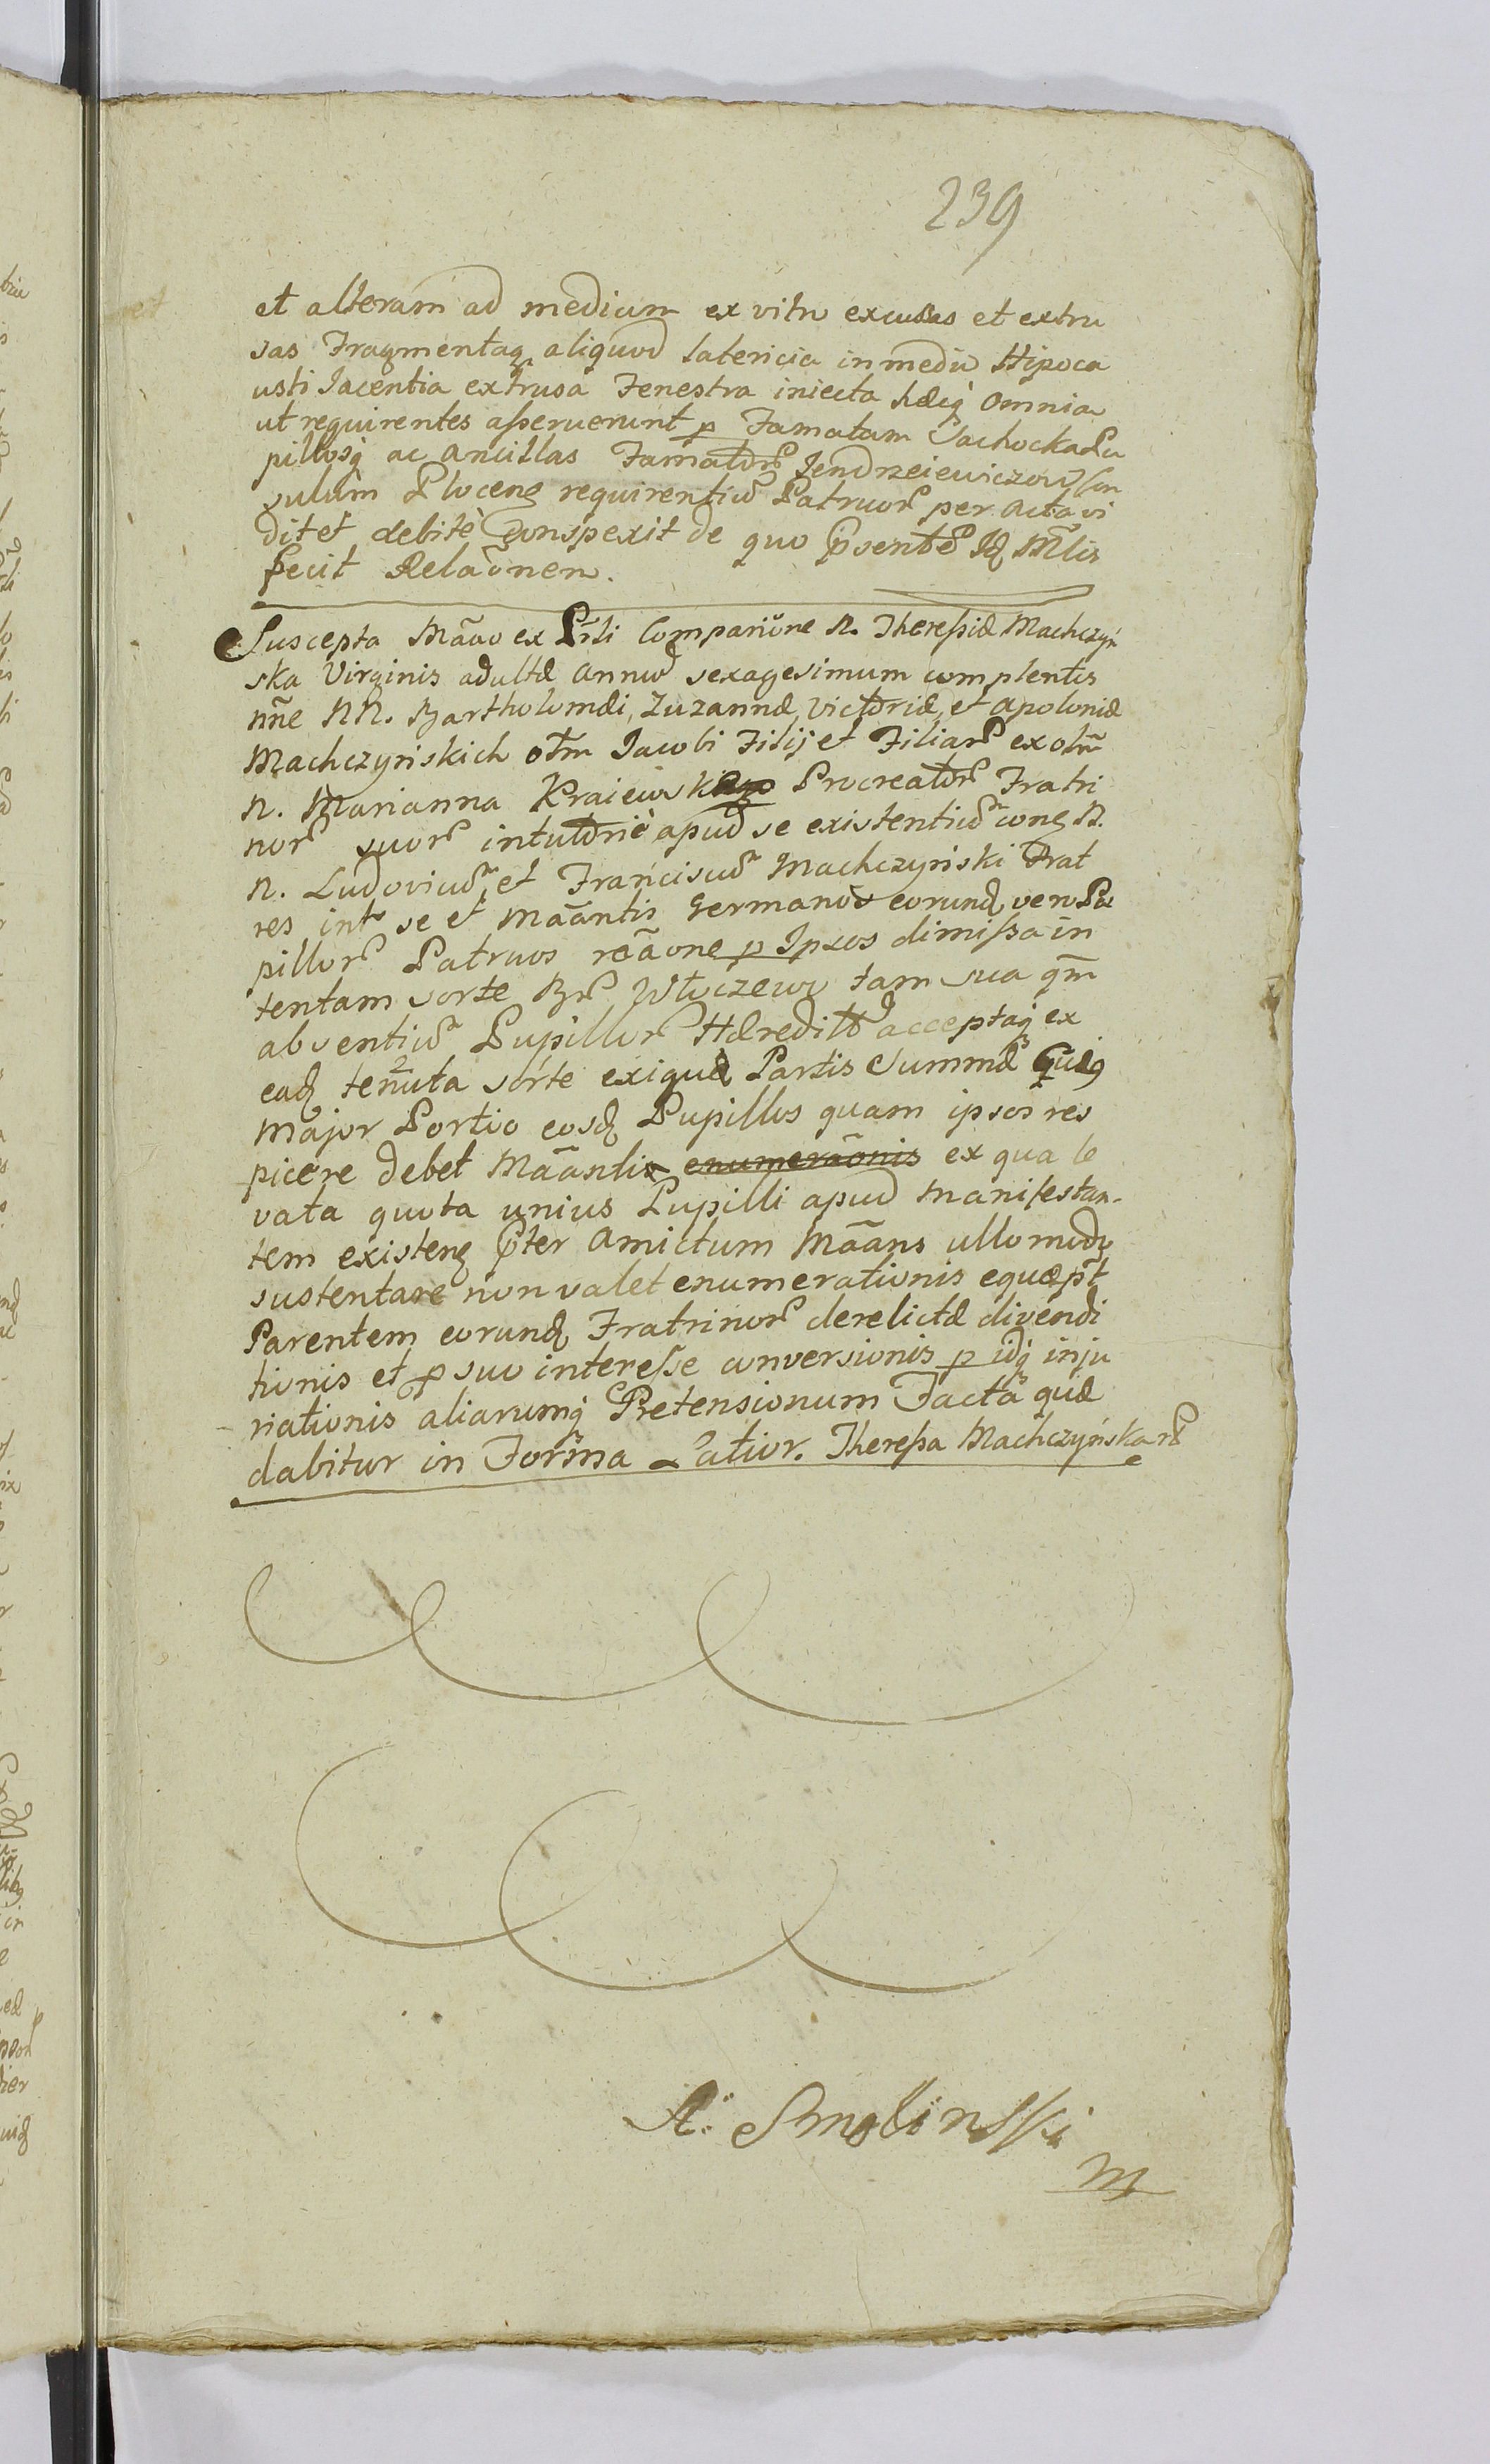 239
et alteram ad medium ex vitro excussas et extru
sas Fragmentaq aliquod latericia in medio Hipoca
usti Iacentia extrusa Fenestra iniecta hæcq omnia
ut requirentes asseruerunt p Famatam Sachocka Pu
pillosq ac ancillas Famator Jendrzeiewiczow Con
sulum Plocens requirentiu Patruor per acta vi
dit et debitè Conspexit de quo psente Id Mlis
fecit Relaōnem.
Suscepta Māāo ex Prsli Compariōne N. Theressiæ Machczyń
ska Virginis adultæ annu sexagesimum complentis
nñe NN. Bartholomæi, Zuzannæ, Victoriæ, et Apoloniæ
Machczyńskich otm Iacobi Filij et Filiar ex olm
N. Marianna Kraiewska Procreator Fratri
nor suor in tutoriè apud se existentiu cons N.
N. Ludovicu et Franciscu Machczyński Frat
res int se et Māāntis Germanos eorund vero Pu
pillor Patruos reāone p Ipsos dimissa in
tentam sorte Br Włoczewo tam sua qm
absentiu Pupillor Hæredit acceptaq ex
ead tenuta sorte exiguæ Partis Summæ Cuis
major Portio eosd Pupillos quam ipsos res
picere debet Māāntis enumeraōnis ex qua le
vata quota unius Pupilli apud manifestan-
tem existens pter Amictum Māāns ullo modo
sustentare non valet enumerationis equæ pt
Parentem eorund Fratrinor derelictæ divendi
tionis et p suo interesse conversionis p idq inju
riationis aliarumq Pretensionum Facta quæ
dabitur in Forma Latior. Theressa Machczyńska
A: Smolinsski